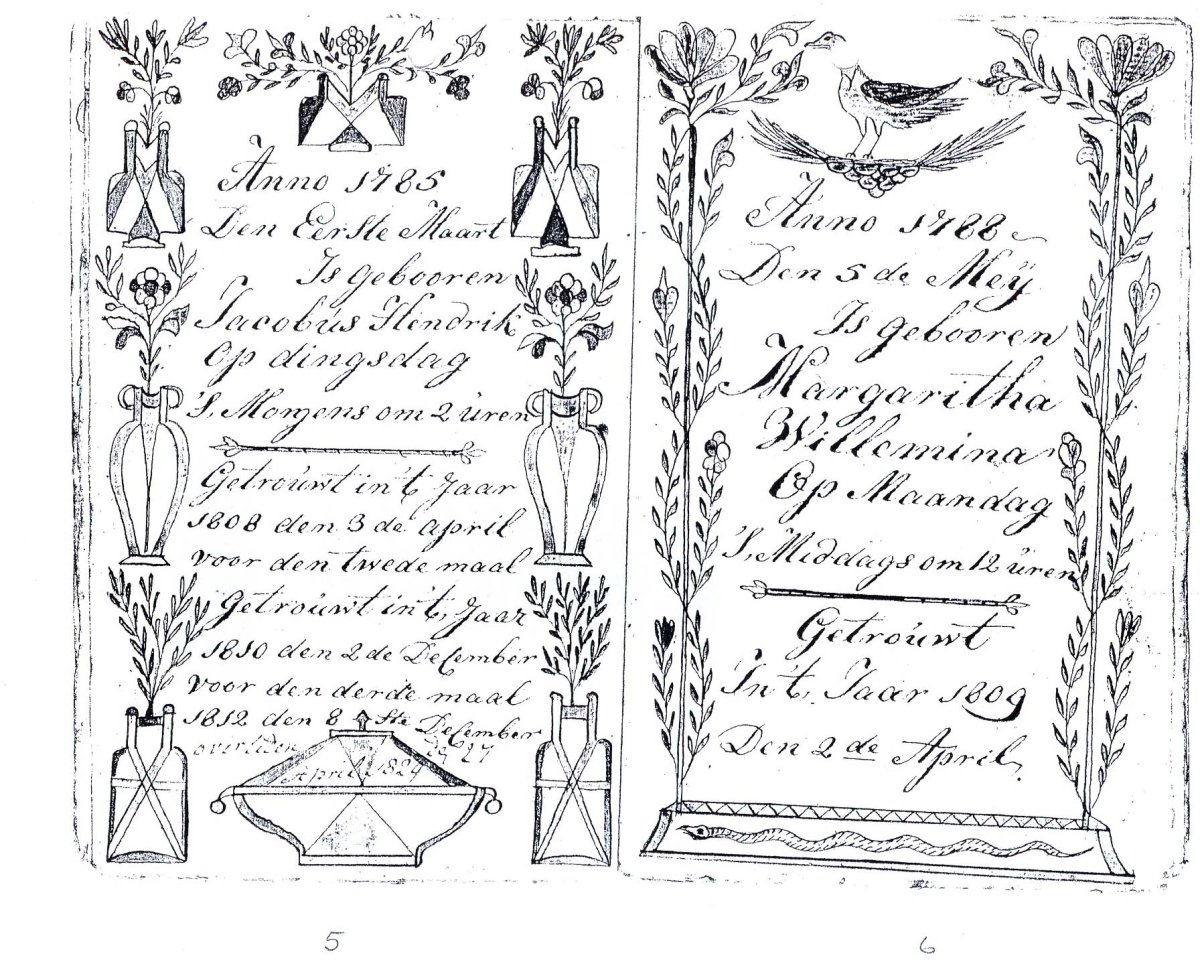 Anno 1785
Den Eerste Maart
Is gebooren
Jacobus Hendrik
Op dingsdag
'S, Morgens om 2 úren
Getroúwt in't Jaar
1808 den 3 de april
voor den twede maal
Getroúwt in't, Jaar
1810 den 2 de December
voor den derde maal
1812 den 8 ste December
overleden 27
April 1829
Anno 1788
Den 5 de Meÿ
Is gebooren
Margaritha
Willemina
Op Maandag
'S, Middags om 12 úren
Getroúwt
In t, Jaar 1809
Den 2 de April,
5
6